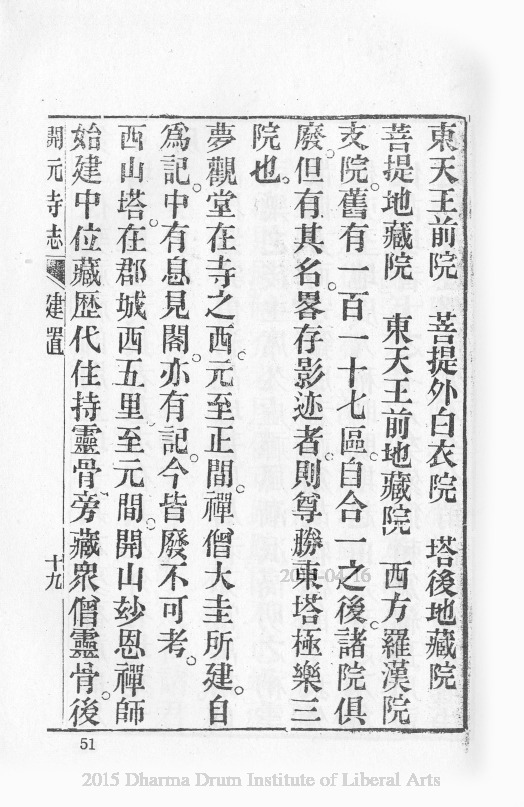 東天王前院　菩提外白衣院　塔後地藏院
菩提地藏院　東天王前地藏院　西方羅漢院
支院。舊有一百一十七區。自合一之後。諸院俱
廢。但有其名。畧存影迹者。則尊勝東塔極樂三
院也。
夢觀堂在寺之西。元至正間。禪僧大圭所建。自
爲記。中有息見閣。亦有記。今皆廢不可考。
西山塔。在郡城西五里。至元間。開山玅恩禪師
始建中位。藏歷代住持靈骨。旁藏衆僧靈骨。後
開元寺志　建置　十九
51
2015 Dharma Drum Institute of Liberal Arts